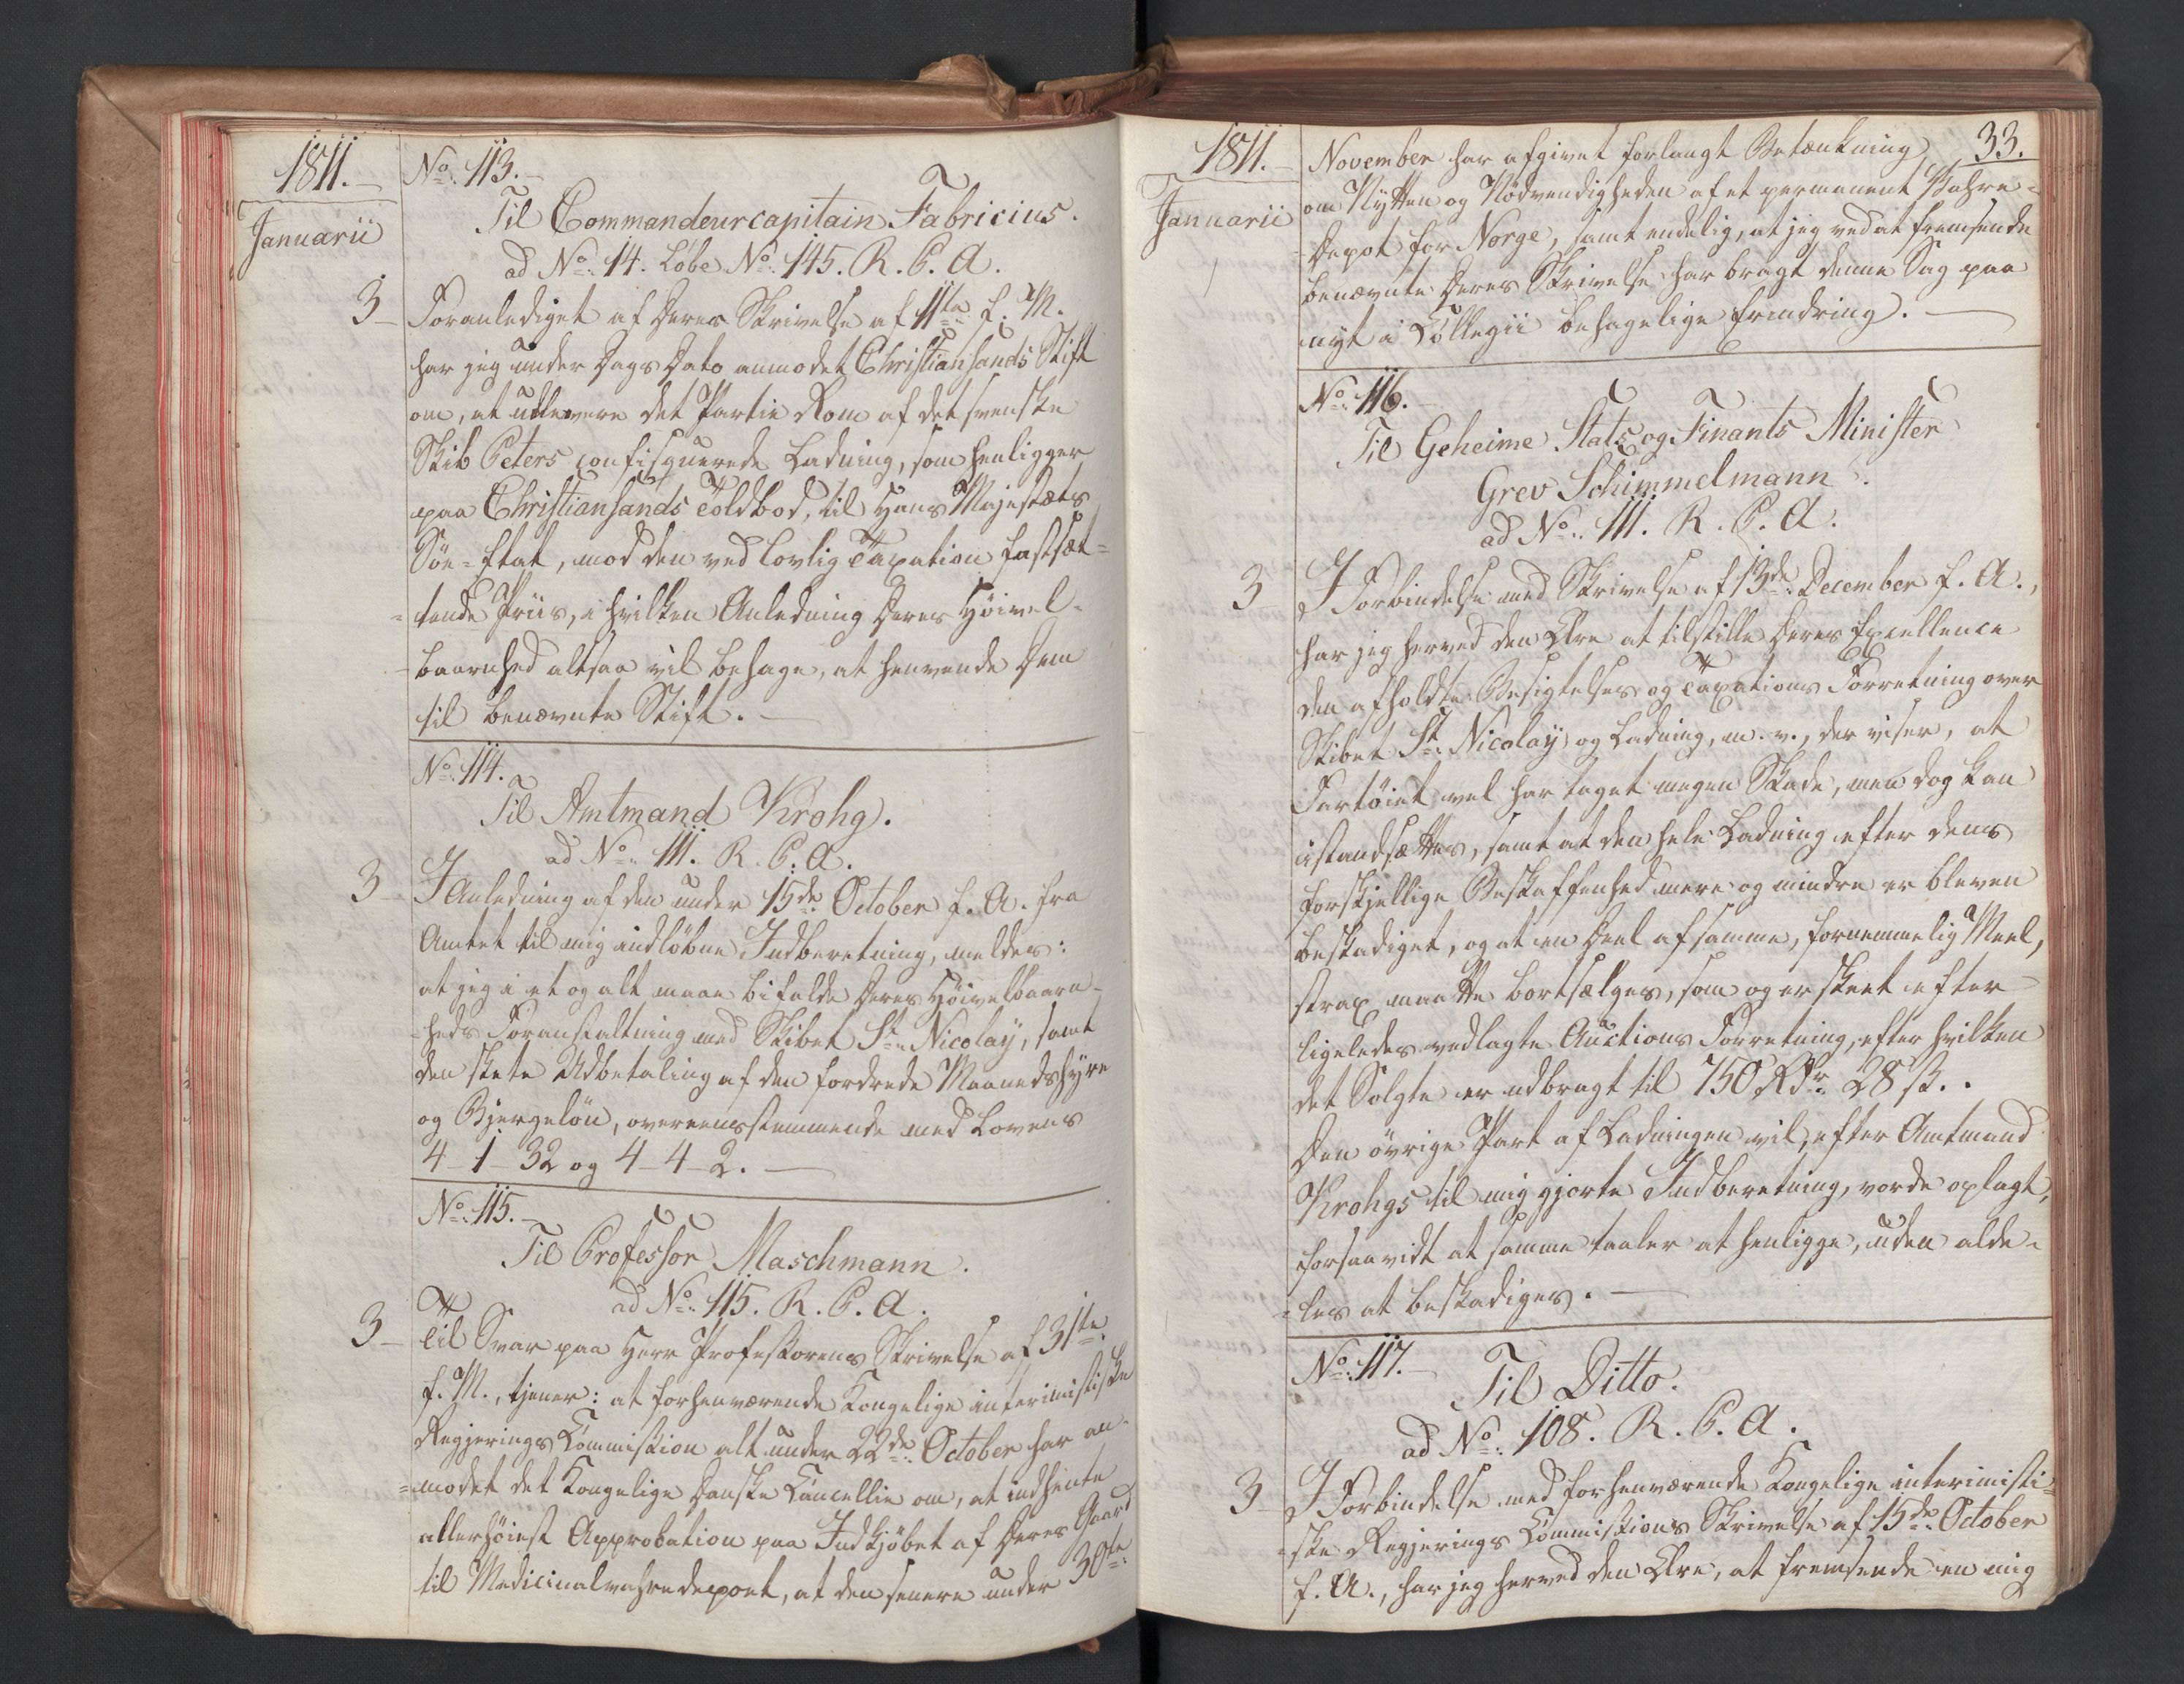 1811.
Januarii
No. 113.
Til Commandeurcapitain Fabricius.
ad No. 14. Löbe No. 145. R. C. A.
3 Foranlediget af Deres Skrivelse af 11te f. M.
har jeg under Dags Dato anmodet Christiansands Stift
om, at udlevere det Partie Rom af det svenske
Skib Peters confisquerede Ladning, som henligger
paa Christiansands Toldbod, til Hans Majestæts
Söe-Etat, mod den ved lovlig Taxation fastsæt-
tende Priis, i hvilken Anledning Deres Höivel-
baarnhed altsaa vil behage, at henvende Dem
til benævnte Stift.
No. 114.
Til Amtmand Krohg.
ad No. 111. R. C. A.
3 I Anledning af den under 15de October f. A. fra
Amtet til mig indlöbne Indberetning, meldes:
at jeg i et og alt maae bifalde Deres Höivelbaarn-
heds Foranstaltning med Skibet St. Nicolay, samt
den skete Udbetaling af den fordrede Maanedshyre
og Bjergelön, overeensstemmende med Lovens
4-1-32 og 4-4-2.
No. 115.
Til Professor Maschmann.
ad No. 115. R. C. A.
3 Til Svar paa Herr Professorens Skrivelse af 31te
f. M., tjener: at forhenværende Kongelige interimistiske
Regjerings Commission alt under 22de October har an-
modet det Kongelige Danske Cancellie om, at indhente
allerhöiest Approbation paa Indkjöbet af Deres Gaard
til Medicinalvahredepoet, at den senere under 30te
1811.
Januarii
33.
November har afgivet forlangt Betænkning
om Nytten og Nödvendigheden af et permanent Vahre-
Depot for Norge, samt endelig, at jeg ved at fremsende
benævnte Deres Skrivelse har bragt denne Sag paa
nyt i Collegii behagelige Erindring.
No. 116.
Til Geheime Stats og Finants Minister
Grev Schimmelmann.
ad No. 111. R. C. A.
3 I Forbindelse med Skrivelse af 13de December f. A.,
har jeg herved den Ære at tilstille Deres Excellence
den afholdte Besigtelses og Taxations Forretning over
Skibet St. Nicolay og Ladning, m. v., der viser, at
Fartöiet vel har taget megen Skade, men dog kan
istandsættes, samt at den hele Ladning efter dens
forskjellige Beskaffenhed mere og mindre er bleven
beskadiget, og at en Deel af samme, fornemmelig Meel,
strax maatte bortsælges, som og er skeet efter
ligeledes vedlagte Auctions Forretning, efter hvilken
det Solgte er udbragt til 750 Rdr. 28 s.
Den övrige Part af Ladningen vil, efter Amtmand
Krohgs til mig gjorte Indberetning, vorde oplagt,
forsaavidt at samme taaler at henligge, uden alde-
les at beskadiges.
No. 117.
Til Ditto.
ad No. 108. R. C. A.
3 I Forbindelse med forhenværende Kongelige interimisti-
ske Regjerings Commissions Skrivelse af 15de October
f. A., har jeg herved den Ære, at fremsende en mig